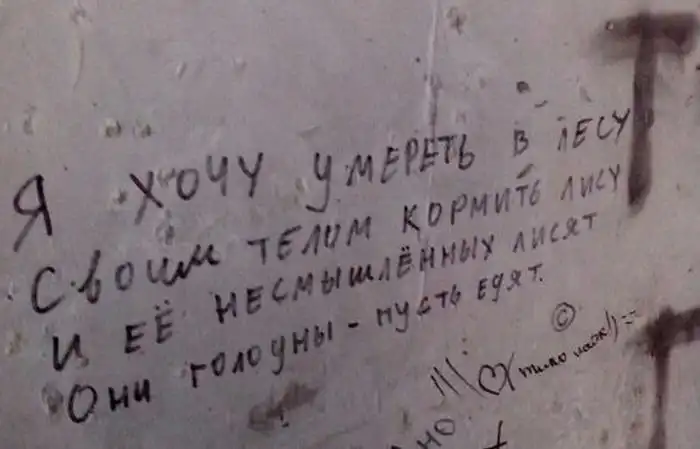 Я ХОЧУ УМЕРЕТЬ В ЛЕСУ
СВОИМ ТЕЛОМ КОРМИТЬ ЛИСУ
И ЕЁ НЕСМЫШЛЁННЫХ ЛИСЯТ
ОНИ ГОЛОДНЫ - ПУСТЬ ЕДЯТ.
©
НО
Т
Т